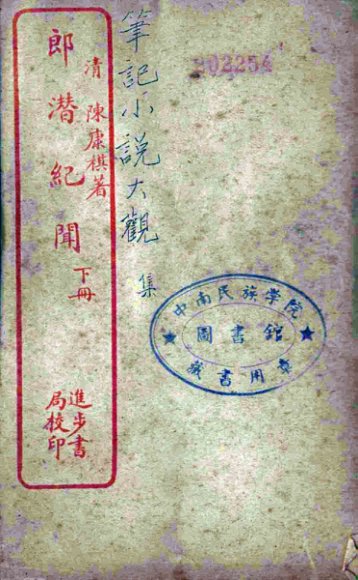 筆記小說大觀 集
清 陳康祺著
郎潛紀聞 下冊
進步書
局校印
中南民族學院
圖書館
藏書用章